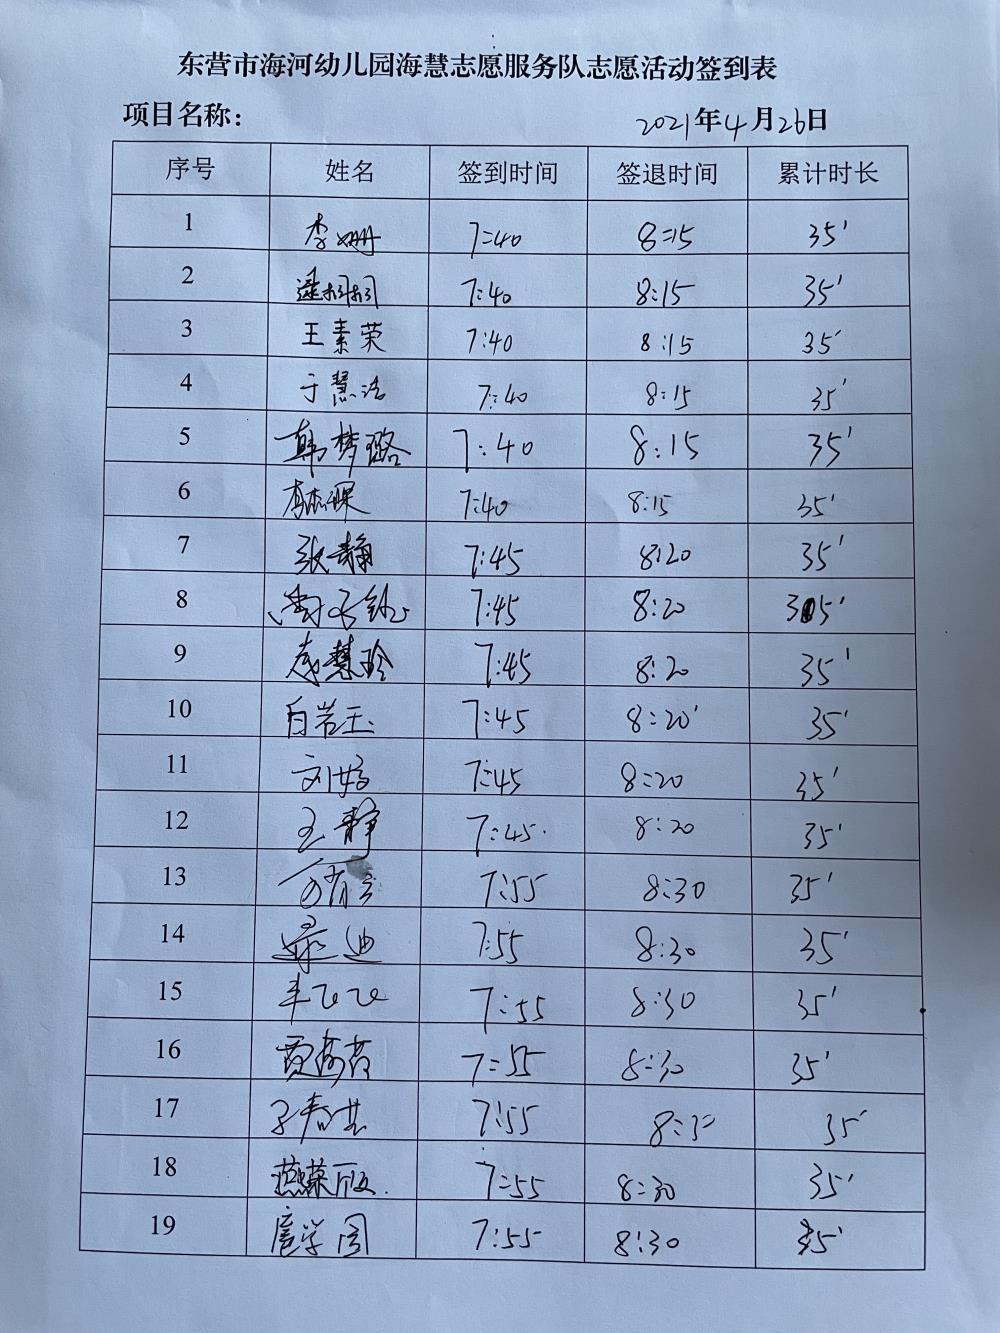 东营市海河幼儿园海慧志愿服务队志愿活动签到表
项目名称： 2021年4月26日
序号 姓名 签到时间 签退时间 累计时长
1 李姗姗 7:40 8:15 35'
2 7:40 8:15 35'
3 王素荣 7:40 8:15 35'
4 于慧洁 7:40 8:15 35'
5 韩梦璐 7:40 8:15 35'
6 7:40 8:15 35'
7 张静 7:45 8:20 35'
8 7:45 8:20 35'
9 7:45 8:20 35'
10 白岩玉 7:45 8:20' 35'
11 刘婷 7:45 8:20 35'
12 王静 7:45 8:20 35'
13 7:55 8:30 35'
14 7:55 8:30 35'
15 7:55 8:30 35'
16 7:55 8:30 35'
17 7:55 8:30 35'
18 7:55 8:30 35'
19 7:55 8:30 35'